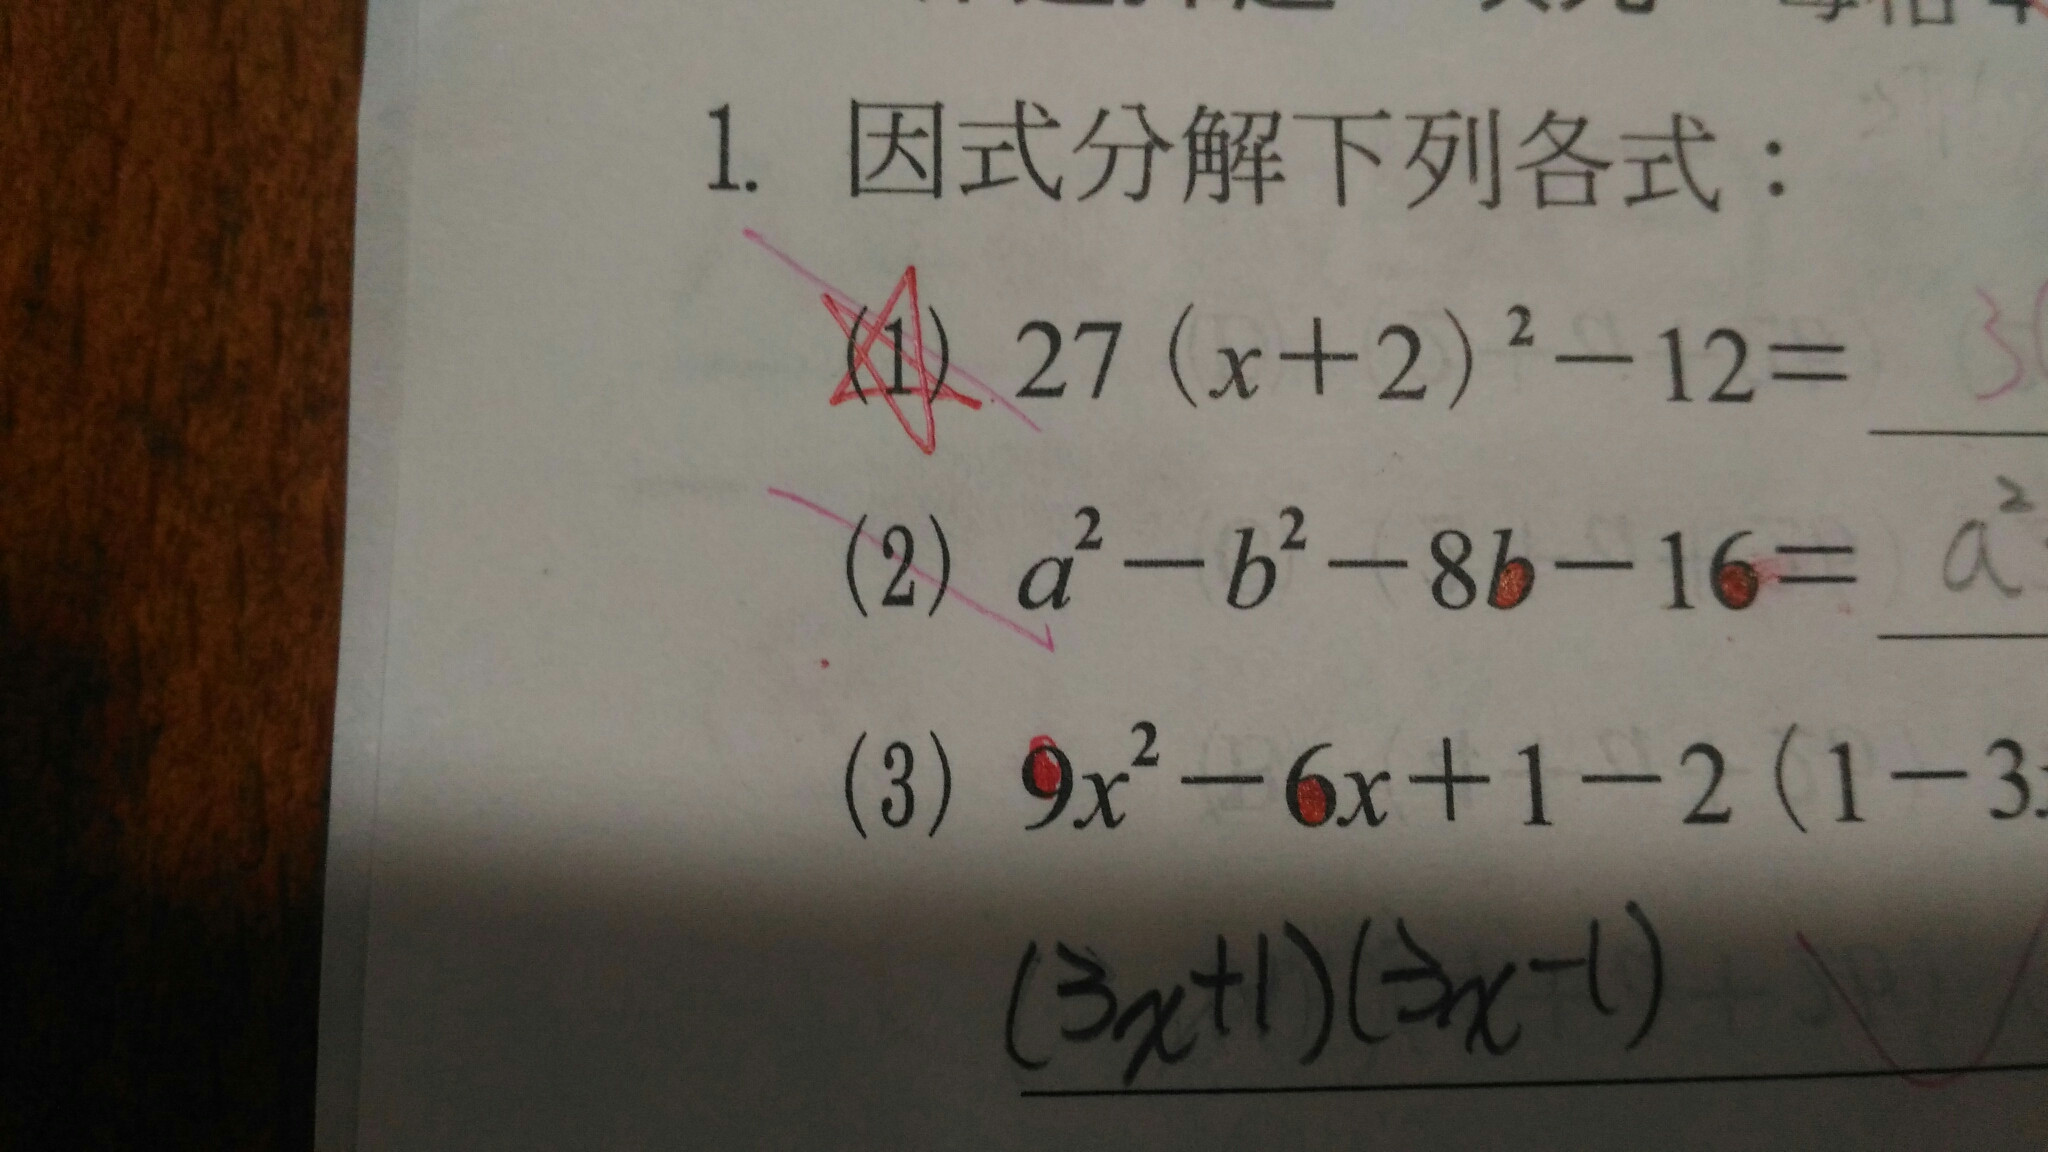 1. 因式分解下列各式：
(1) 27（x+2）²－12= 3(
(2) a²－b²－8b－16= a²
(3) 9x²－6x+1－2（1－3x
(3x+1)(3x-1)